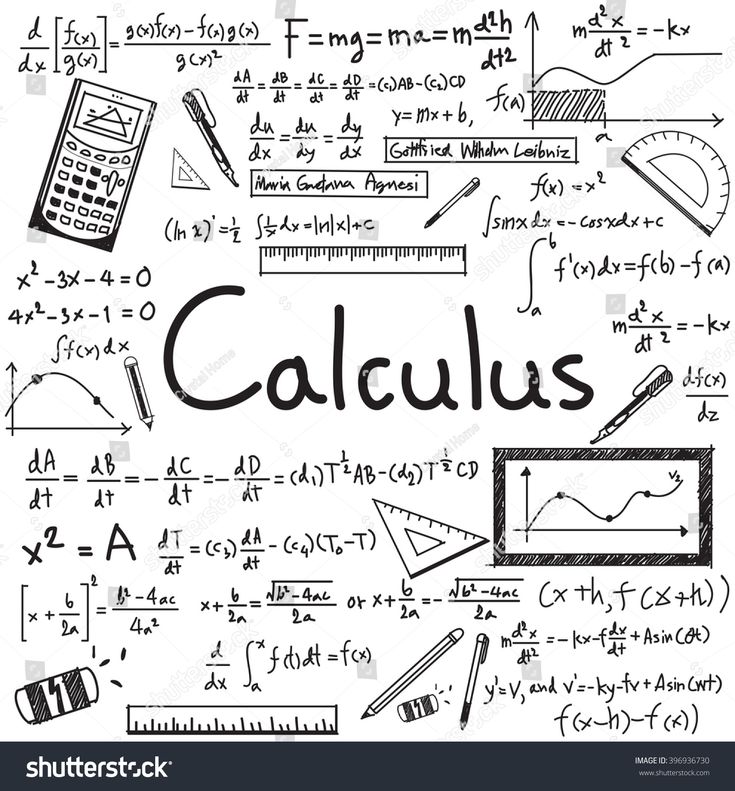 d/dx [f(x)/g(x)] = g(x)f(x) – f(x)g(x) / g(x)²
F = mg = ma = m d²h/dt²
m d²x/dt² = –kx
dA/dt = dB/dt = dC/dt = dD/dt = (c₁)AB – (c₂)CD
f(a)
a
y = mx + b,
du/dx = du/dy = dy/dx
Gottfried Wilhelm Leibniz
Maria Gaetana Agnesi
f(x) = x²
(ln x)' = 1/2
∫ 1/x dx = ln|x| + c
∫ sinx dx = –cosxdx + c
∫ₐᵇ f'(x) dx = f(b) – f(a)
x² – 3x – 4 = 0
4x² – 3x – 1 = 0
Calculus
m d²x/dt² = –kx
∫f(x) dx
df(x)/dz
dA/dt = dB/dt = –dC/dt = –dD/dt = (d₁)T^½ AB – (d₂)T^½ CD
V₂
x² = A
dT/dt = (c₃) dA/dt – (c₄)(T₀ – T)
[x + b/2a]² = b² – 4ac / 4a²
x + b/2a = √(b² – 4ac) / 2a or x + b/2a = –√(b² – 4ac) / 2a
(x+h, f(x+h))
d/dx ∫ₐˣ f(t) dt = f(x)
m d²x/dt² = –kx – f dx/dt + Asin(ωt)
y' = v, and v' = –ky – fv + Asin(wt)
f(x–h) – f(x)
shutterstock
IMAGE ID: 396936730
www.shutterstock.com